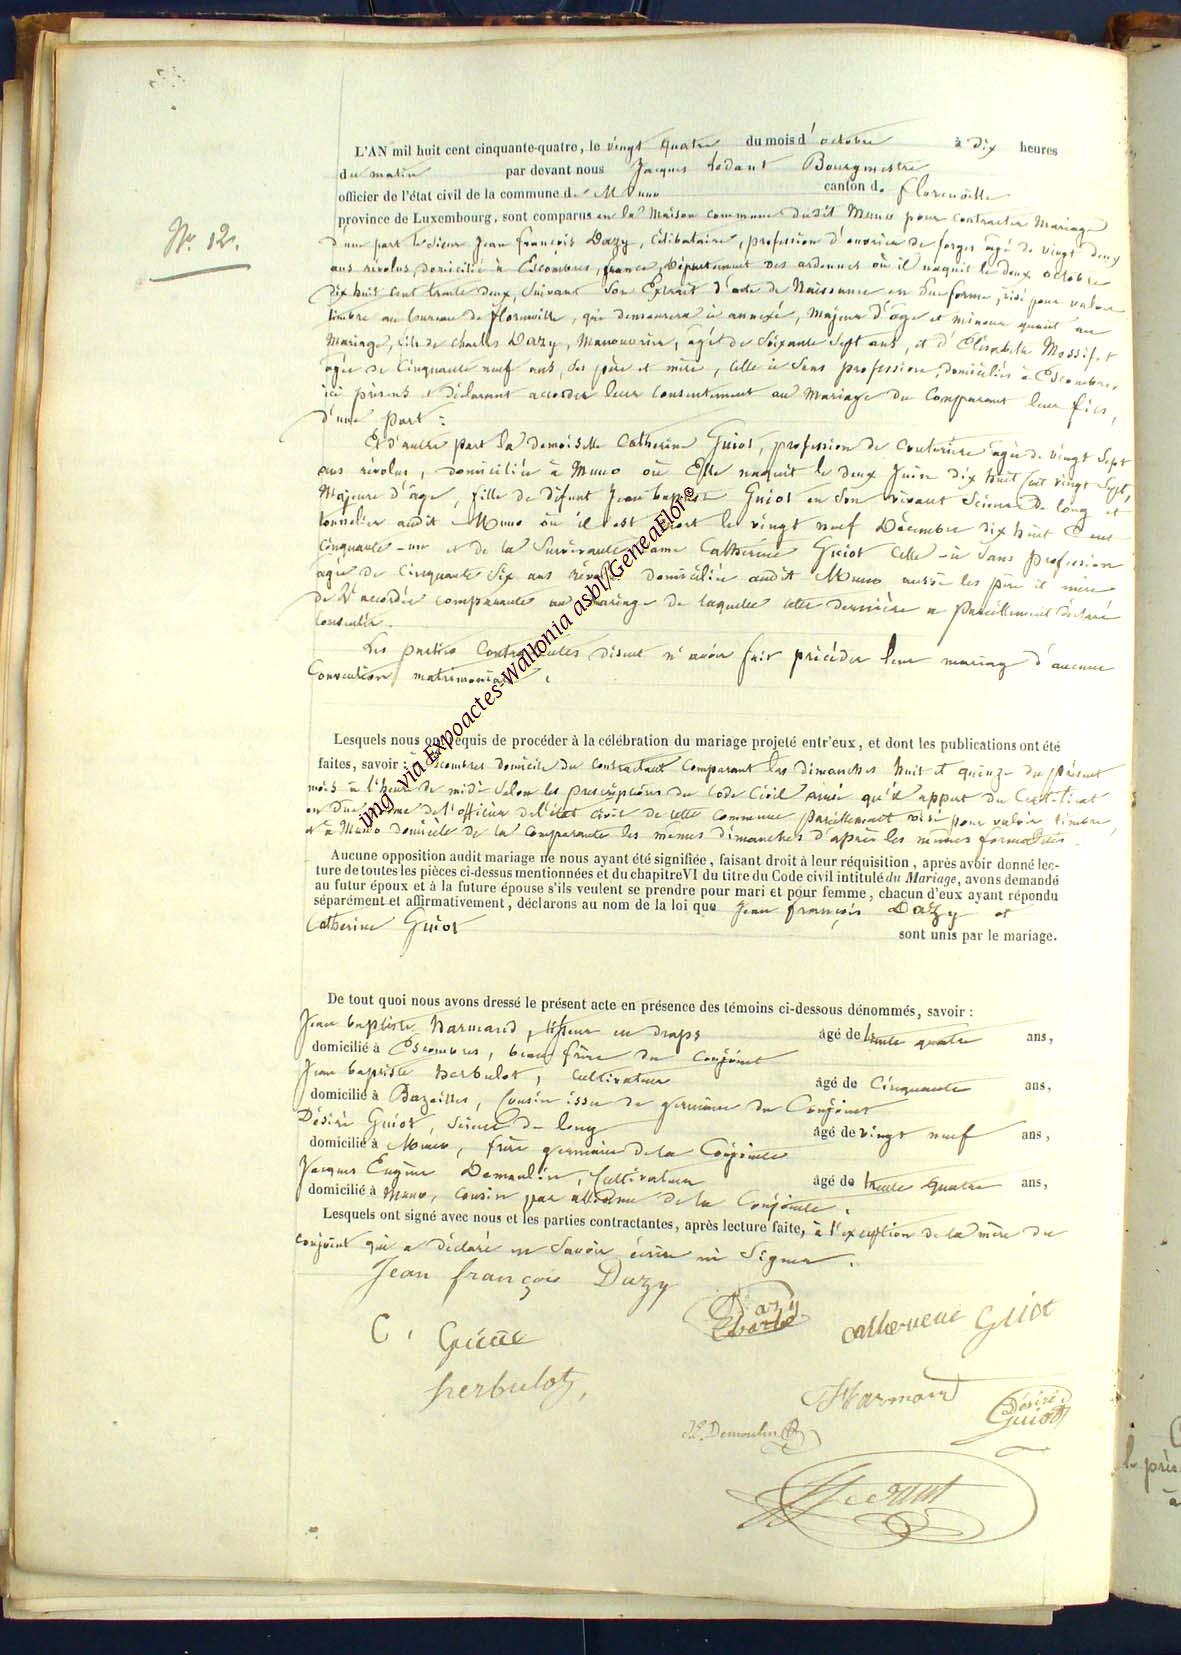 L'AN mil huit cent cinquante-quatre, le vingt quatre du mois d'octobre à dix heures
du matin par devant nous Jacques Bourgmestre
officier de l'état civil de la commune de Muno canton de Florenville
province de Luxembourg, sont comparus en la Maison commune dudit Muno pour contracter Mariage
N° 12.
d'une part le Sieur Jean François Dazy, Célibataire, profession d'ouvrier de forges agé de vingt deux
ans révolus, domicilié à Escombres, france, Département des ardennes où il naquit le deux octobre
dix huit cent trente deux, suivant son Extrait d'acte de Naissance en due forme, visé pour valoir
timbre au bureau de florenville, qui demeurera ci annexé, Majeur d'age et mineur quant au
Mariage, fils de charles Dazy, Manouvrier, agé de Soixante Sept ans, et d'Elisabeth
agée de Cinquante neuf ans, ses père et mère, celle ci sans profession, domiciliés à Escombres,
ici présens et déclarant accorder leur consentement au Mariage du Comparant leur fils,
d'une part :
Et d'autre part la demoiselle Catherine Guiot, profession de Couturière agée de vingt sept
ans révolus, domiciliée à Muno où Elle naquit le deux Juin dix huit Cent vingt Sept,
Majeure d'age, fille de défunt Jean baptiste Guiot en son vivant Scieur de long et
tonnelier audit Muno où il est mort le vingt neuf Décembre dix huit Cent
Cinquante-un et de la Survivante Dame Catherine Guiot Celle-ci Sans profession
agée de Cinquante Six ans révolus domiciliée audit Muno aussi les père et mère
de l'accordée comparante au mariage de laquelle cette dernière a pareillement déclaré
Consentir.
Les parties Contractantes disent n'avoir fait précéder leur mariage d'aucune
Convention matrimoniale.
img via Expoactes-Wallonia asbl/GeneaFlor©
Lesquels nous ont requis de procéder à la célébration du mariage projeté entr'eux, et dont les publications ont été
faites, savoir : à Escombres domicile du Contractant Comparant les dimanches huit et quinze du présent
mois à l'heure de midi Selon les prescriptions du Code Civil ainsi qu'il appert du Certificat
en due forme de l'officier de l'état civil de cette commune pareillement visé pour valoir timbre,
et à Muno domicile de la Comparante les mêmes dimanches d'après les mêmes formalités.
Aucune opposition audit mariage ne nous ayant été signifiée, faisant droit à leur réquisition, après avoir donné lec-
ture de toutes les pièces ci-dessus mentionnées et du chapitre VI du titre du Code civil intitulé du Mariage, avons demandé
au futur époux et à la future épouse s'ils veulent se prendre pour mari et pour femme, chacun d'eux ayant répondu
séparément et affirmativement, déclarons au nom de la loi que Jean françois Dazy et
Catherine Guiot
sont unis par le mariage.
De tout quoi nous avons dressé le présent acte en présence des témoins ci-dessous dénommés, savoir :
Jean baptiste Harmand, tisseur en draps agé de trente quatre ans,
domicilié à Escombres, beau frère du Conjoint
Jean baptiste Herbulot, Cultivateur agé de Cinquante ans,
domicilié à Bazeilles, Cousin issu de germain du Conjoint
Désiré Guiot, Scieur de long agé de vingt neuf ans,
domicilié à Muno, frère germain de la Conjointe
Jacques Eugène Demoulin, Cultivateur agé de trente quatre ans,
domicilié à Muno, Cousin par alliance de la Conjointe.
Lesquels ont signé avec nous et les parties contractantes, après lecture faite, à l'exception de la mère du
conjoint qui a déclaré ne Savoir écrire ni Signer.
Jean françois Dazy
Dazy Charle
Catherene Guiot
C. Guiot
herbulot,
Harmand
Désiré Guiot
J.E. Demoulin